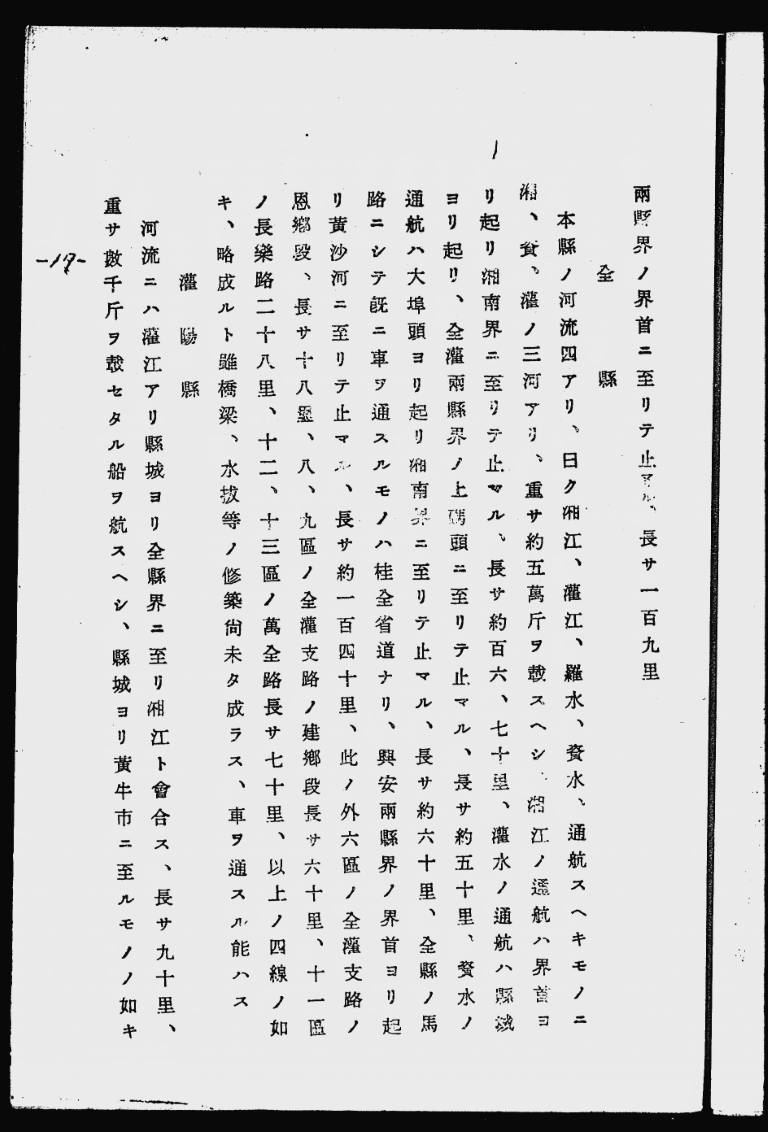 兩縣界ノ界首ニ至リテ止マル、長サ一百九里
全縣
本縣ノ河流四アリ、曰ク湘江、灌江、羅水、資水、通航スヘキモノニ
湘、資、灌ノ三河アリ、重サ約五萬斤ヲ載スヘシ、湘江ノ通航ハ界首ヨ
リ起リ湘南界ニ至リテ止マル、長サ約百六、七十里、灌水ノ通航ハ縣城
ヨリ起リ、全灌兩縣界ノ上碼頭ニ至リテ止マル、長サ約五十里、資水ノ
通航ハ大埠頭ヨリ起リ湘南界ニ至リテ止マル、長サ約六十里、全縣ノ馬
路ニシテ既ニ車ヲ通スルモノハ桂全省道ナリ、興安兩縣界ノ界首ヨリ起
リ黃沙河ニ至リテ止マル、長サ約一百四十里、此ノ外六區ノ全灌支路ノ
恩鄕段、長サ十八里、八、九區ノ全灌支路ノ建鄕段長サ六十里、十一區
ノ長樂路二十八里、十二、十三區ノ萬全路長サ七十里、以上ノ四線ノ如
キ、略成ルト雖橋梁、水拔等ノ修築尙未タ成ラス、車ヲ通スル能ハス
灌陽縣
河流ニハ灌江アリ縣城ヨリ全縣界ニ至リ湘江ト會合ス、長サ九十里、
重サ數千斤ヲ載セタル船ヲ航スヘシ、縣城ヨリ黃牛市ニ至ルモノノ如キ
-19-